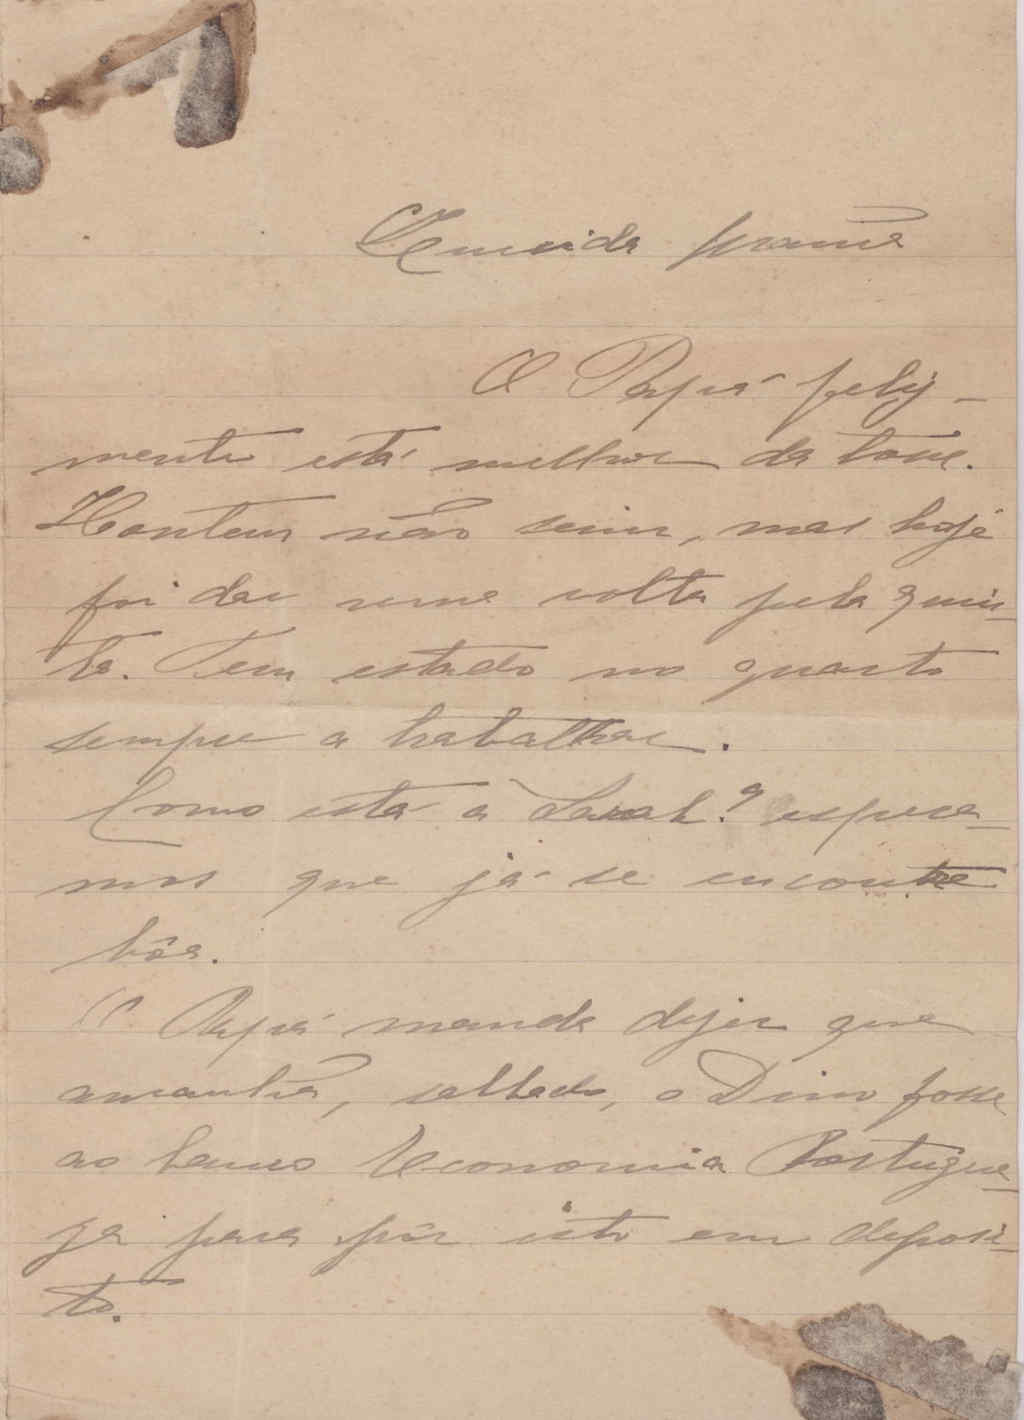 Querida mamã
O Papá feliz-
mente está melhor da tosse.
Hontem não saiu, mas hoje
foi dar uma volta pela quin-
ta. Tem estado no quarto
sempre a trabalhar.
Como está a Sarah? espera-
mos que já se encontre
bôa.
O Papá manda dizer que
amanhã, sabbado, o Dino fosse
ao banco Economia Portugue-
za para pôr isto em deposi-
to.